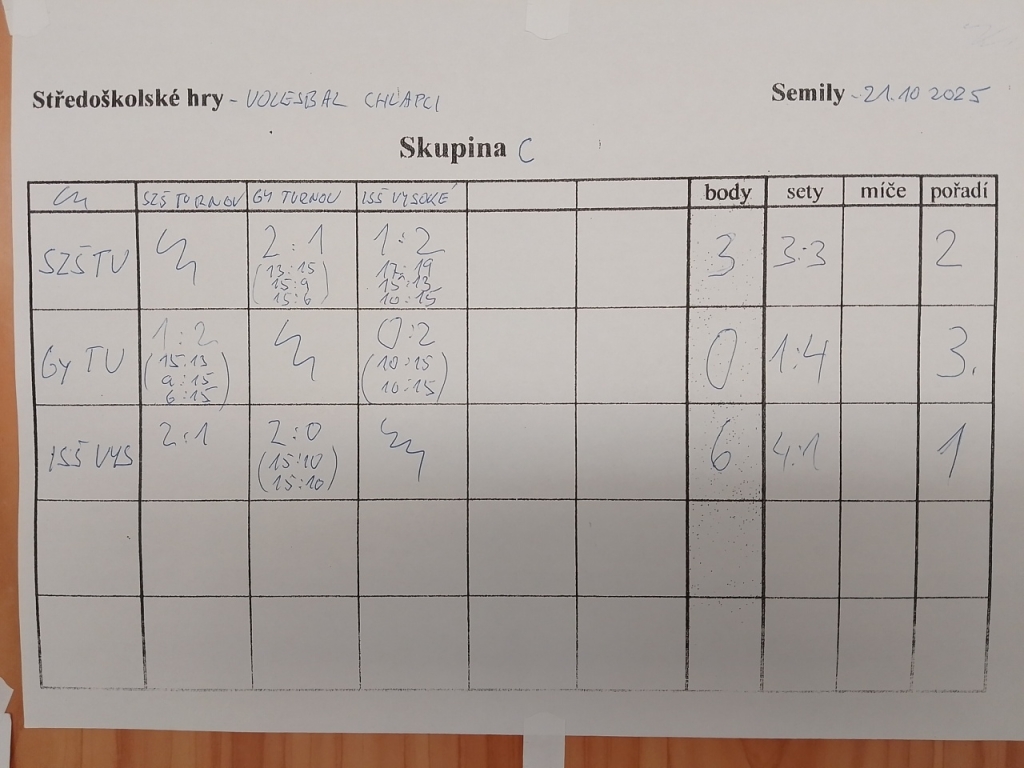 Středoškolské hry - VOLEJBAL CHLAPCI
Semily - 21.10 2025
Skupina C
SZŠ TURNOV GY TURNOV ISŠ VYSOKÉ body sety míče pořadí
SZŠ TU 2:1 1:2 3 3:3 2
(13:15 17:19
15:9 15:13
15:6) 10:15
Gy TU 1:2 0:2 0 1:4 3.
(15:13 (10:15
9:15 10:15)
6:15)
ISŠ VYS 2:1 2:0 6 4:1 1
(15:10)
15:10)